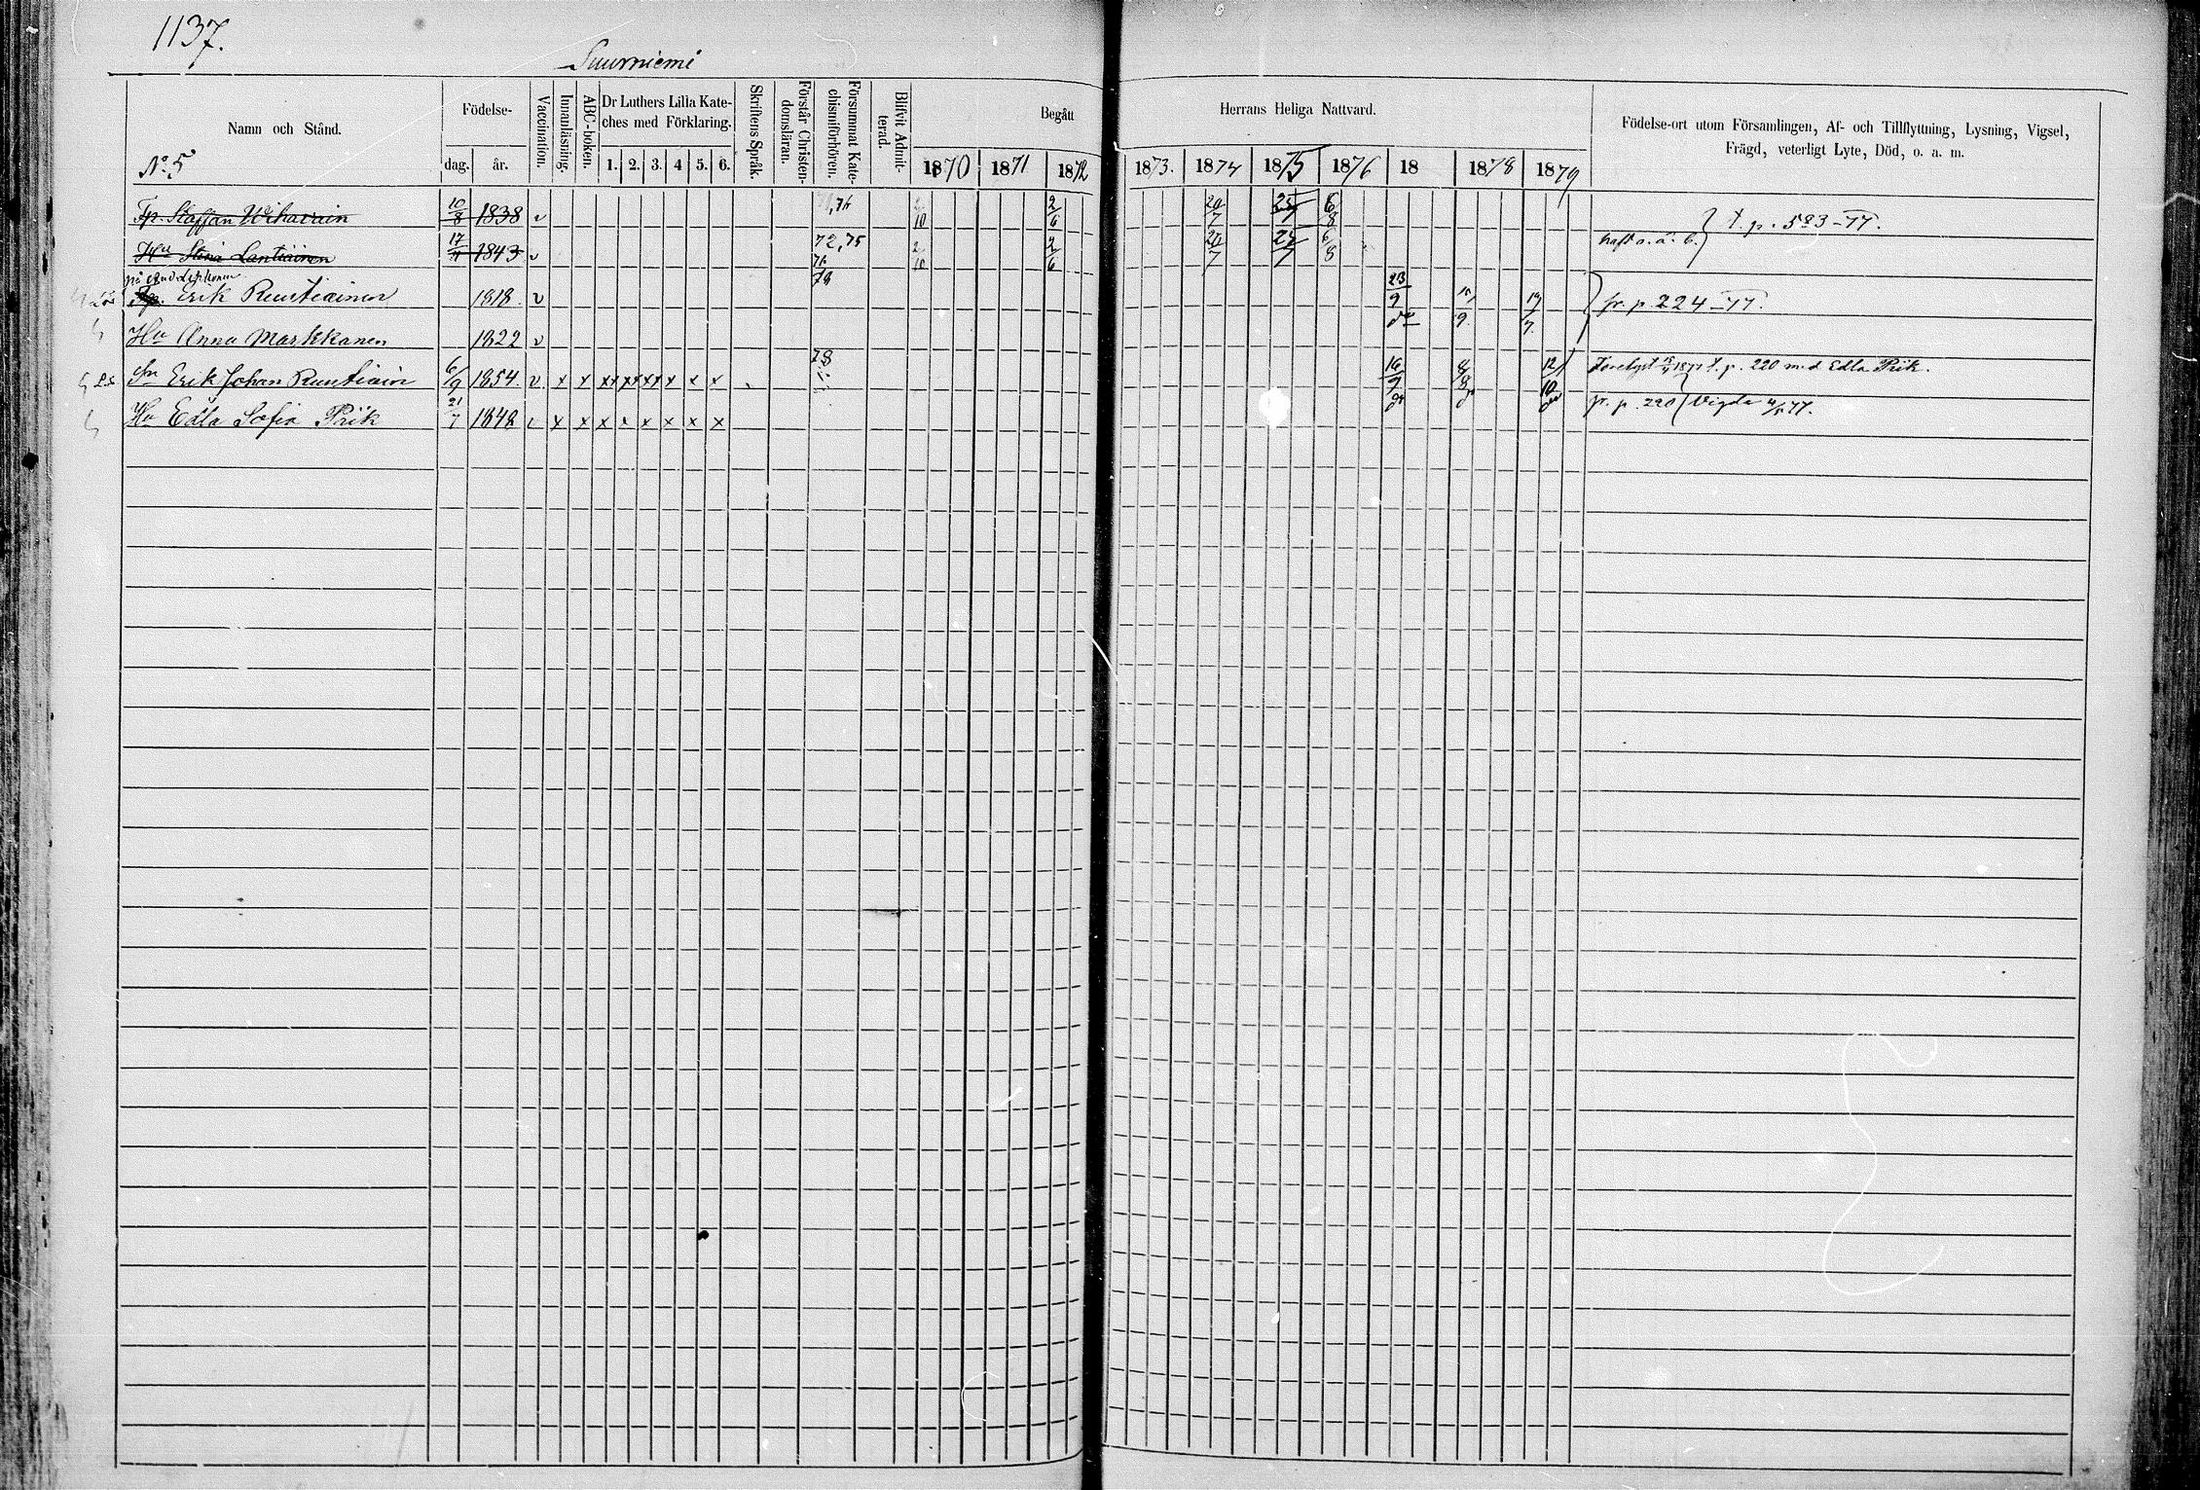 1137.
Suurniemi
Namn och Stånd.
Födelse-
dag.
år.
Vaccination.
Innanläsning.
ABC-boken.
Dr Luthers Lilla Kate-
ches med Förklaring.
1. 2. 3. 4 5. 6.
Skriftens Språk.
Förstår Christen-
domsläran.
Försummat Kate-
chismiförhören.
Blifvit Admit-
terad.
Begått
Herrans Heliga Nattvard.
1870 1871 1872
1873. 1874 1875 1876 18 1878 1879
Födelse-ort utom Församlingen, Af- och Tillflyttning, Lysning, Vigsel,
Frägd, veterligt Lyte, Död, o. a. m.
No 5
Tp. Staffan Wihavain 10/8 1838 v 2/10 2/6 20/7 25/7 6/8 t. p. 583-77.
Hu Stina Lantiainen 17 1843 v 72,75 76 2/10 2/6 6/8
Erik Ruutiainen 1818. v 79 23/9 fr. p. 224-77.
Hu Anna Markkanen 1822 v do
Sn Erik Johan Ruutiain 6/9 1854. v x x xx xx xx x x x 78 16/9 12/10 t. p. 220 med Edla Piik.
Hu Edla Sofia Piik 21/7 1848 x x x x x x x x do fr. p. 220 Vigda 77.